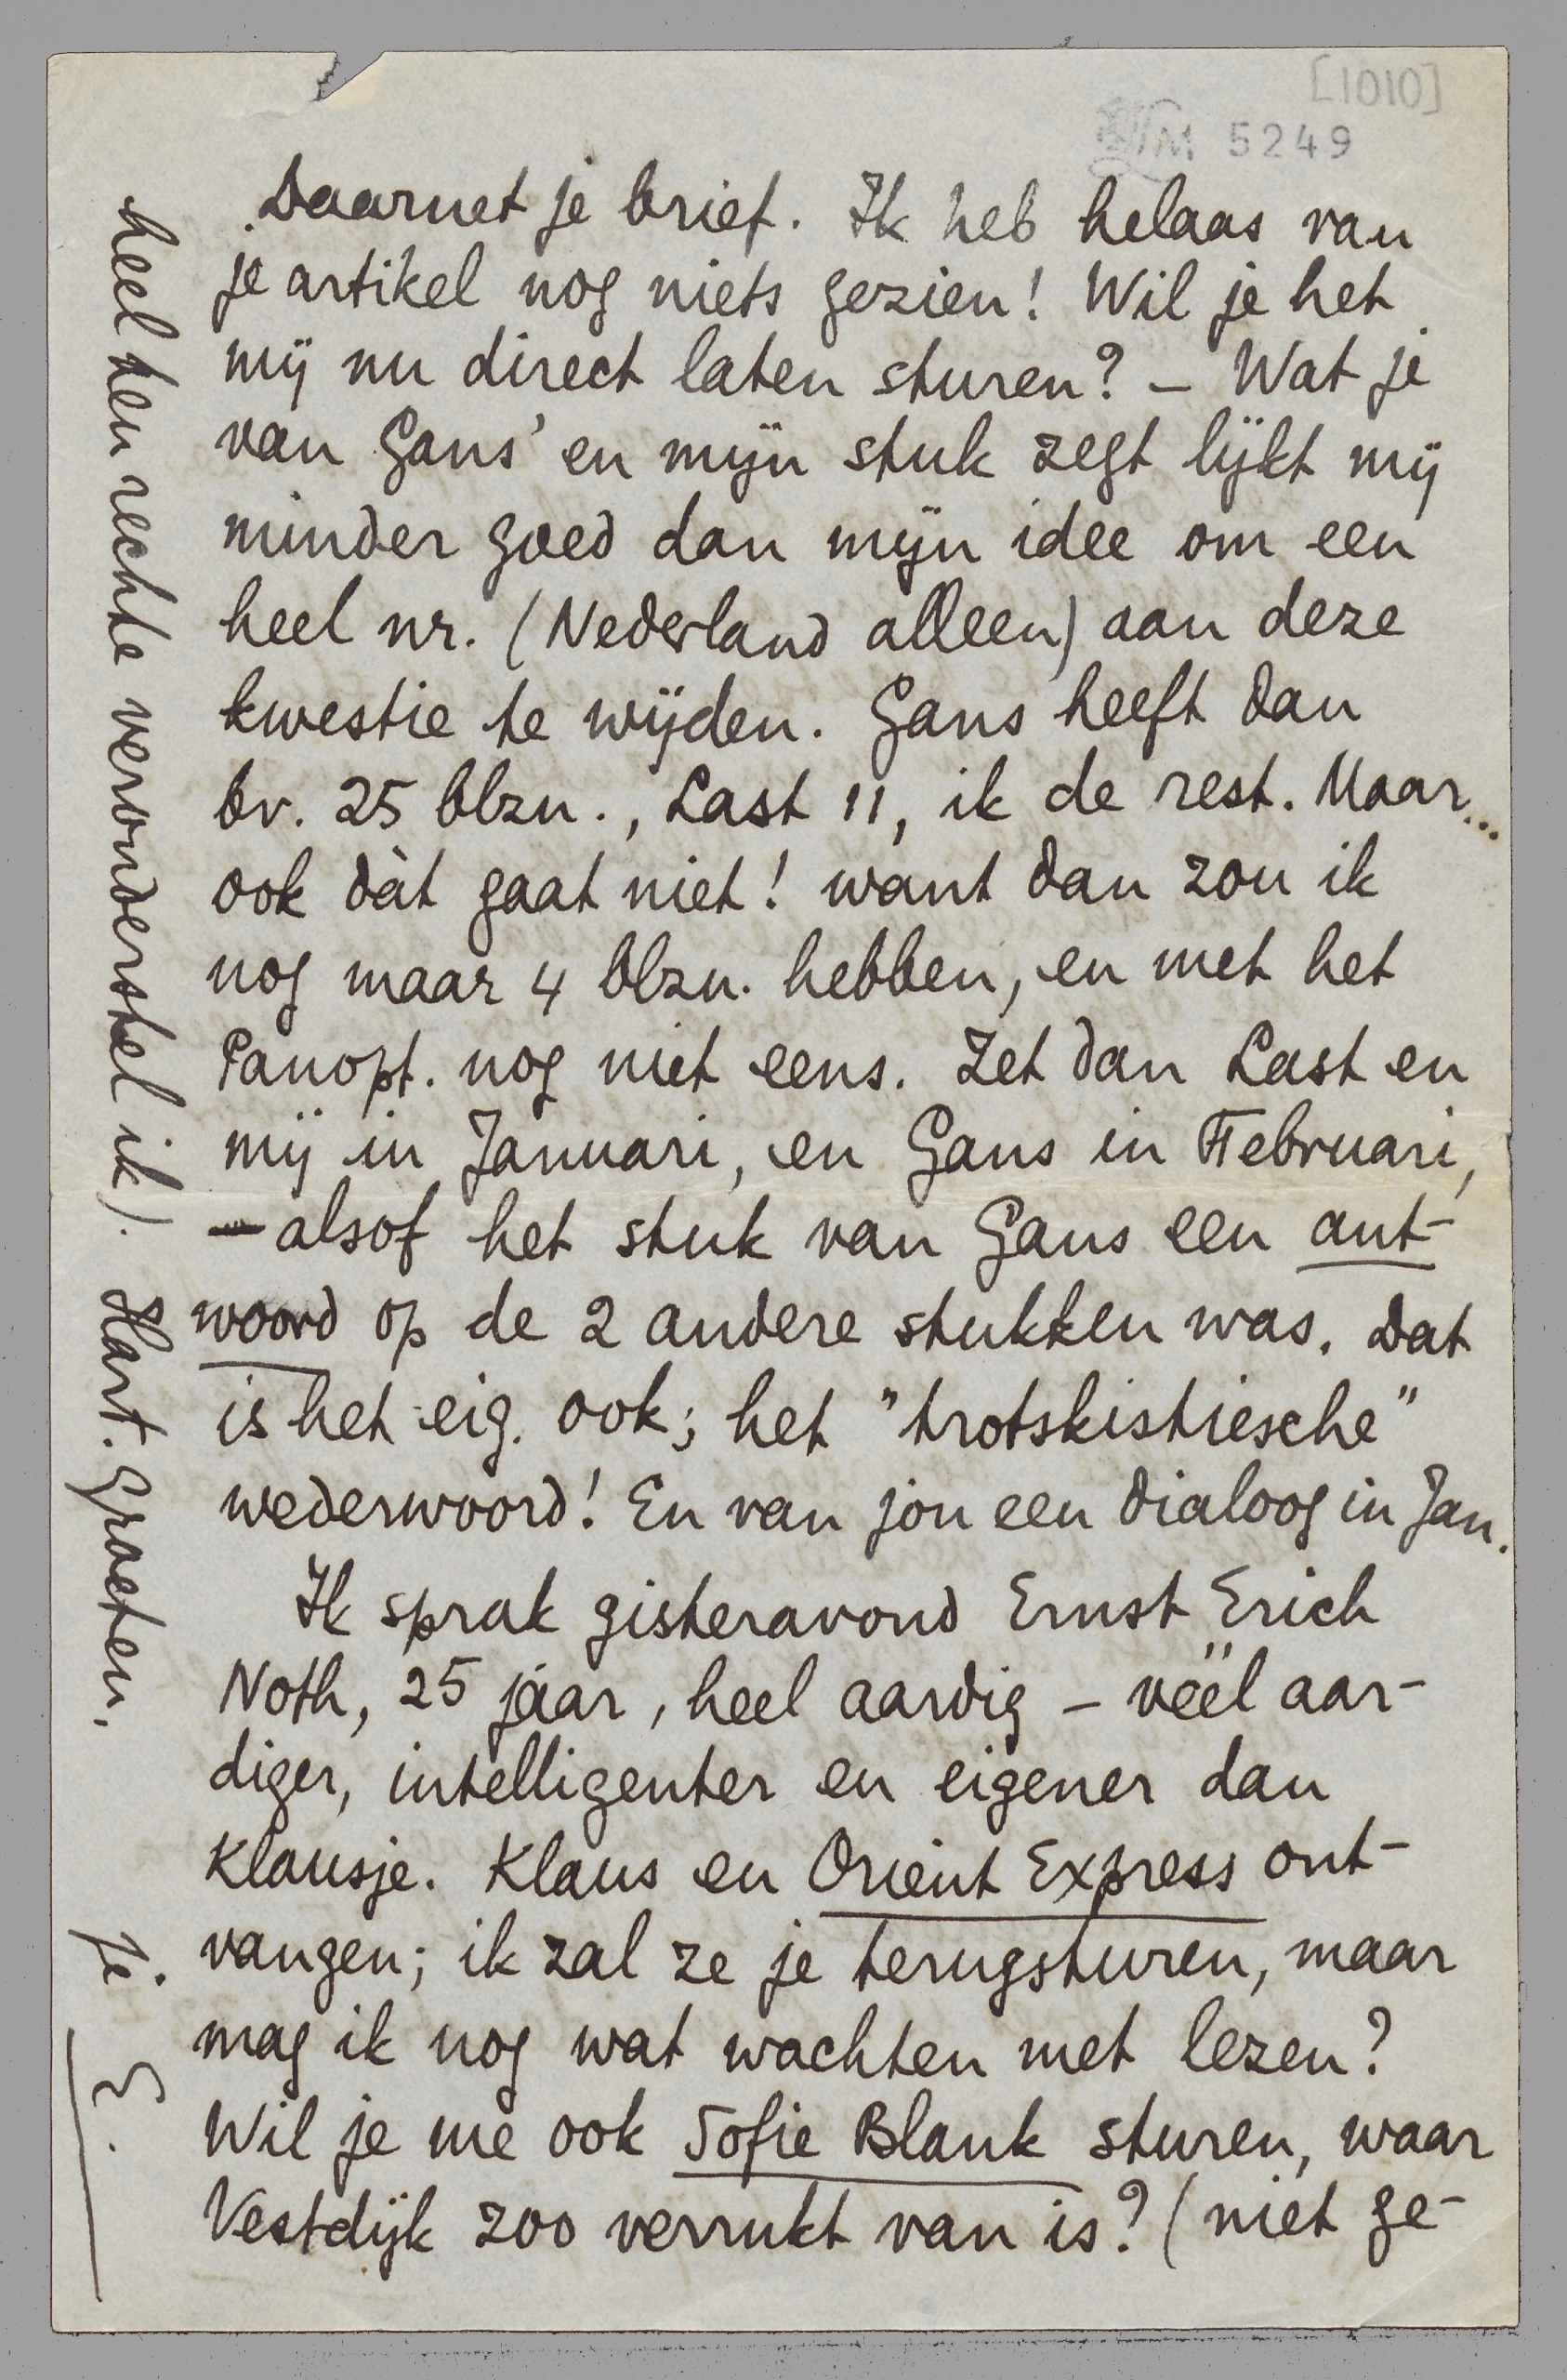 [1010]
M 5249
Daarnet je brief. Ik heb helaas van
je artikel nog niets gezien! Wil je het
mij nu direct laten sturen? – Wat je
van Gans' en mijn stuk zegt lijkt mij
minder goed dan mijn idee om een
heel nr. (Nederland alleen) aan deze
kwestie te wijden. Gans heeft dan
bv. 25 blzn., Last 11, ik de rest. Maar...
ook dàt gaat niet! want dan zou ik
nog maar 4 blzn. hebben, en met het
Panopt. nog niet eens. Zet dan Last en
mij in Januari, en Gans in Februari,
– alsof het stuk van Gans een ant-
woord op de 2 andere stukken was. Dat
is het eig. ook; het "trotskistiesche"
wederwoord! En van jou een dialoog in Jan.
Ik sprak gisteravond Ernst Erich
Noth, 25 jaar, heel aardig – véél aar-
diger, intelligenter en eigener dan
Klausje. Klaus en Orient Express ont-
vangen; ik zal ze je terugsturen, maar
mag ik nog wat wachten met lezen?
Wil je me ook Sofie Blank sturen, waar
Vestdijk zoo verrukt van is? (niet ge-
heel ten rechte veronderstel ik). Hart. Groeten.
Je E.